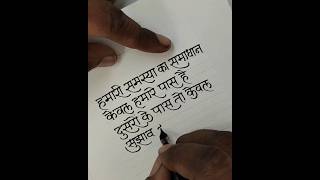 हमारी समस्या का समाधान
केवल हमारे पास है
दुसरो के पास तो केवल
सुझाव